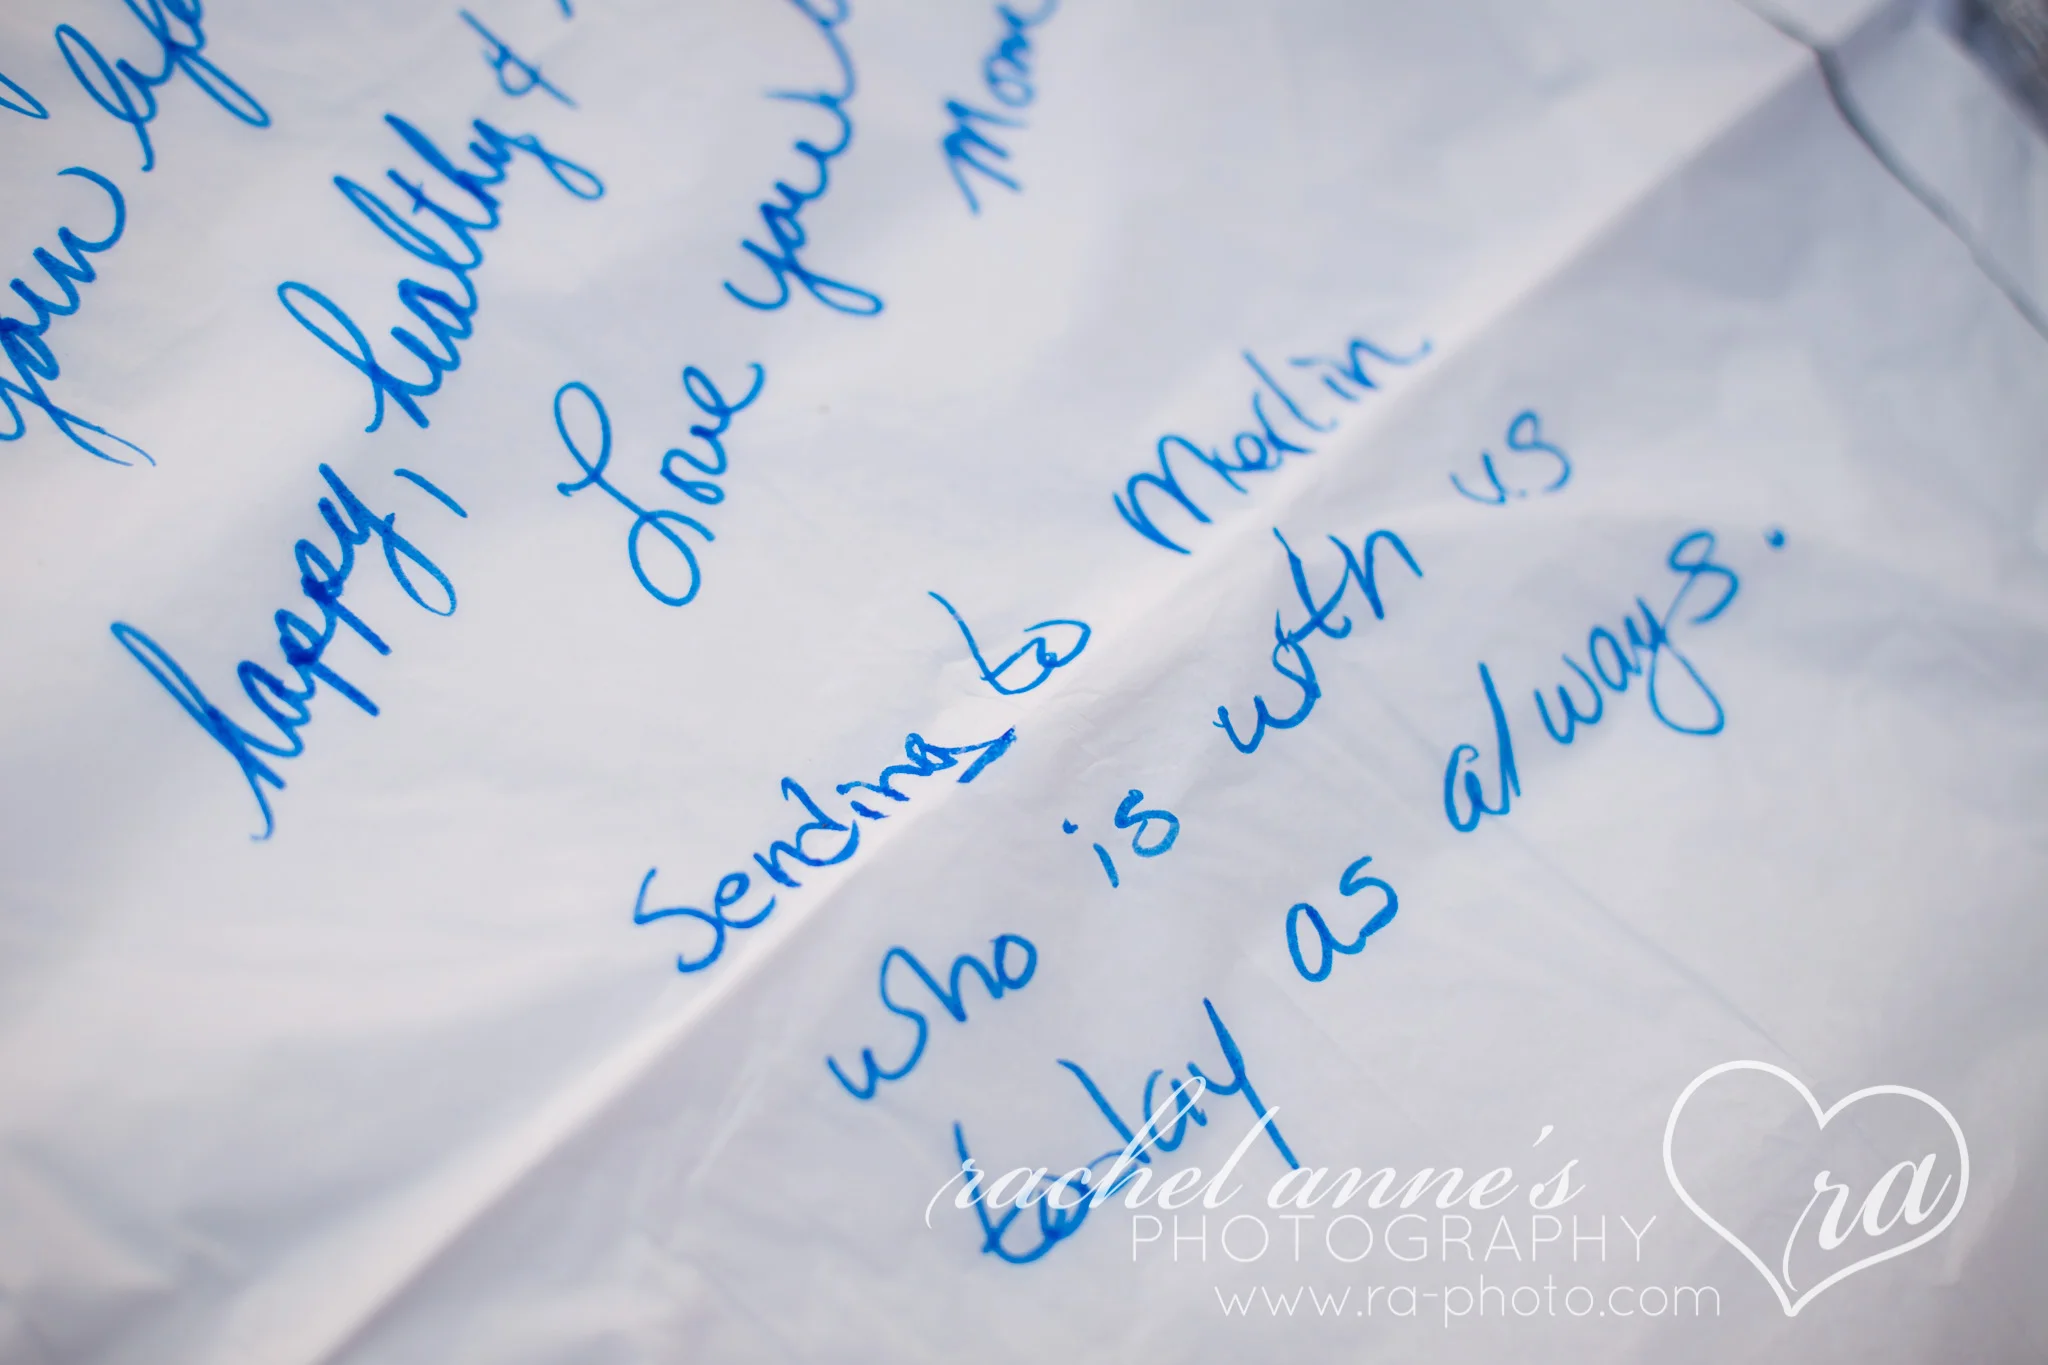 your life
happy, healthy &
Love you
Mom
Sending to Merlin
who is with us
today as always.
rachel anne's
PHOTOGRAPHY
www.ra-photo.com
ra